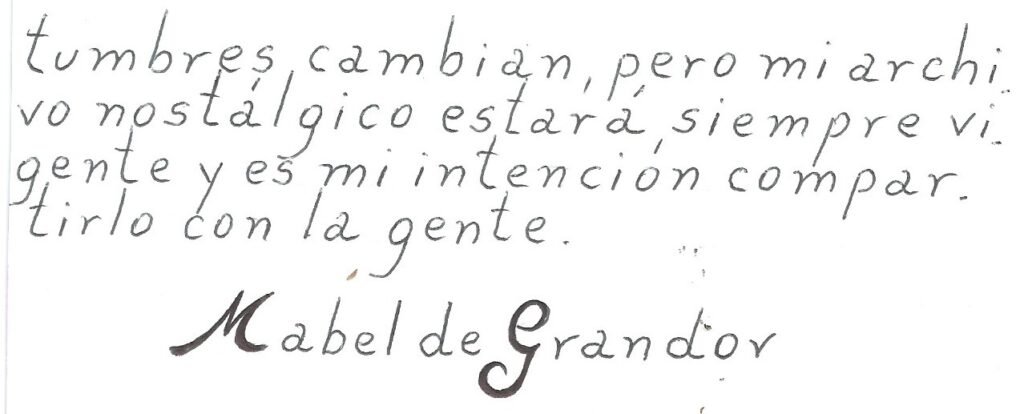 tumbres, cambian, pero mi archi.
vo nostálgico estará, siempre vi.
gente y es mi intención compar.
tirlo con la gente.
Mabel de Grandor